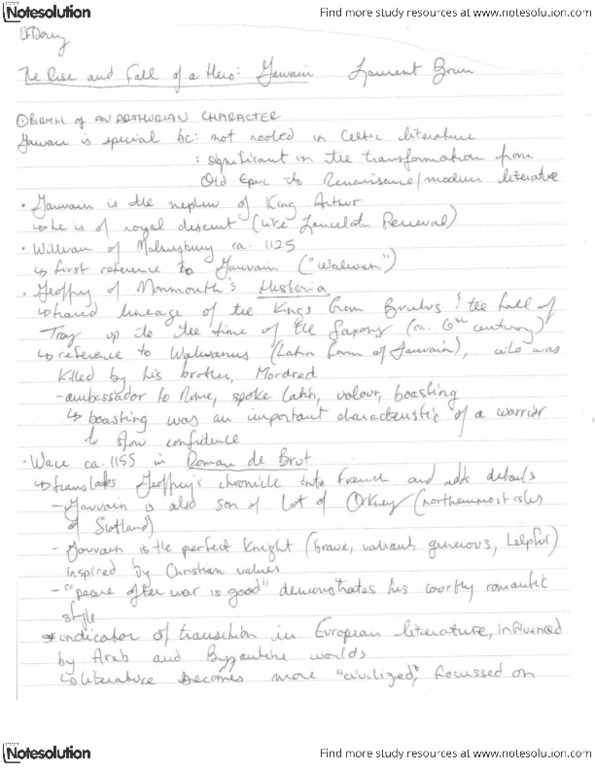 Notesolution
Find more study resources at www.notesolution.com
The Rise and Fall of a Hero: Gauvain Laurent Brun
① BIRTH OF AN ARTHURIAN CHARACTER
Gauvain is special bc: not rooted in Celtic literature
: significant in the transformation from
Old Epic to Renaissance/modern literature
• Gauvain is the nephew of King Arthur
↳ he is of royal descent (like Lancelot, Perceval)
• William of Malmesbury ca. 1125
↳ first reference to Gauvain ("Walwen")
• Geoffry of Monmouth's Historia
↳ traced lineage of the Kings from Brutus & the fall of
Troy up to the time of the Saxons (ca. 6th century)
↳ reference to Walwanus (Latin form of Gauvain), who was
killed by his brother, Mordred
- ambassador to Rome, spoke latin, valour, boasting
↳ boasting was an important characteristic of a warrior
to show confidence
• Wace ca. 1155 in Roman de Brut
↳ translates Geoffry's chronicle into French and adds details
- Gauvain is also son of Lot of Orkney (northernmost isles
of Scotland)
- Gauvain is the perfect knight (brave, valiant, generous, helpful)
inspired by Christian values
- "peace after war is good" demonstrates his courtly romantic
style
* indicator of transition in European literature, influenced
by Arab and Byzantine worlds
↳ literature becomes more "civilized," focussed on
Notesolution
Find more study resources at www.notesolution.com